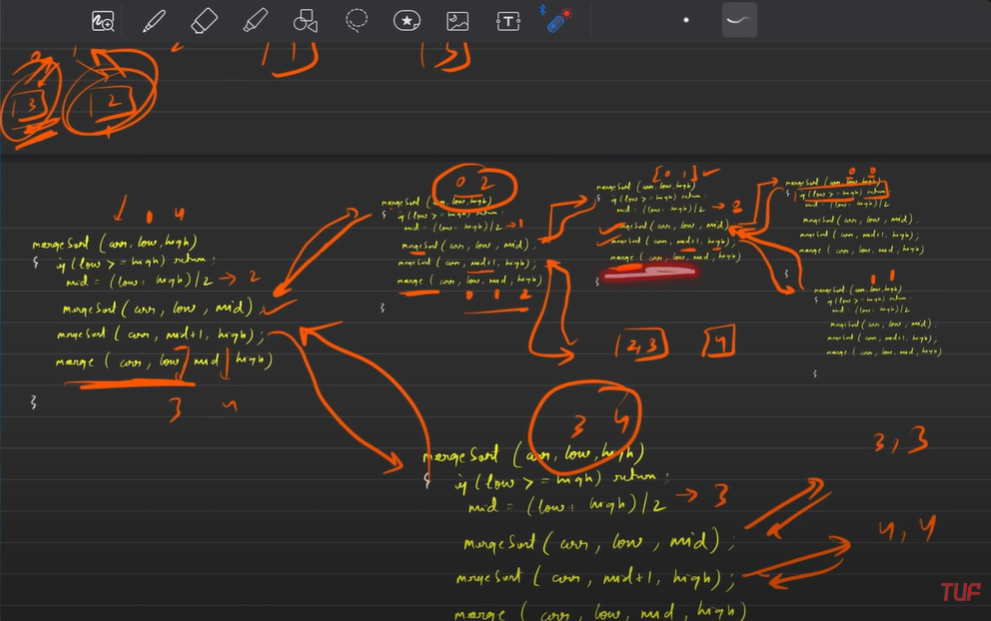 3 2
0 4
mergeSort (arr, low, high)
{
if (low >= high) return;
mid = (low + high)/2 → 2
mergeSort (arr, low, mid);
mergeSort (arr, mid+1, high);
merge (arr, low, mid, high)
3 4
}
0 2
mergeSort (arr, low, high)
{
if (low >= high) return;
mid = (low + high)/2 → 1
mergeSort (arr, low, mid);
mergeSort (arr, mid+1, high);
merge (arr, low, mid, high)
0 1 2
}
[0 1]
mergeSort (arr, low, high)
if (low >= high) return;
mid = (low + high)/2
mergeSort (arr, low, mid);
mergeSort (arr, mid+1, high);
merge (arr, low, mid, high)
}
0 0
mergeSort (arr, low, high)
if (low >= high) return
mid = (low + high)/2
mergeSort (arr, low, mid);
mergeSort (arr, mid+1, high);
merge (arr, low, mid, high)
}
1 1
mergeSort (arr, low, high)
if (low >= high) return;
mid = (low + high)/2
mergeSort (arr, low, mid);
mergeSort (arr, mid+1, high);
merge (arr, low, mid, high)
}
3 4
mergeSort (arr, low, high)
{
if (low >= high) return;
mid = (low + high)/2 → 3
mergeSort (arr, low, mid);
mergeSort (arr, mid+1, high);
merge (arr, low, mid, high)
3, 3
4, 4
TUF